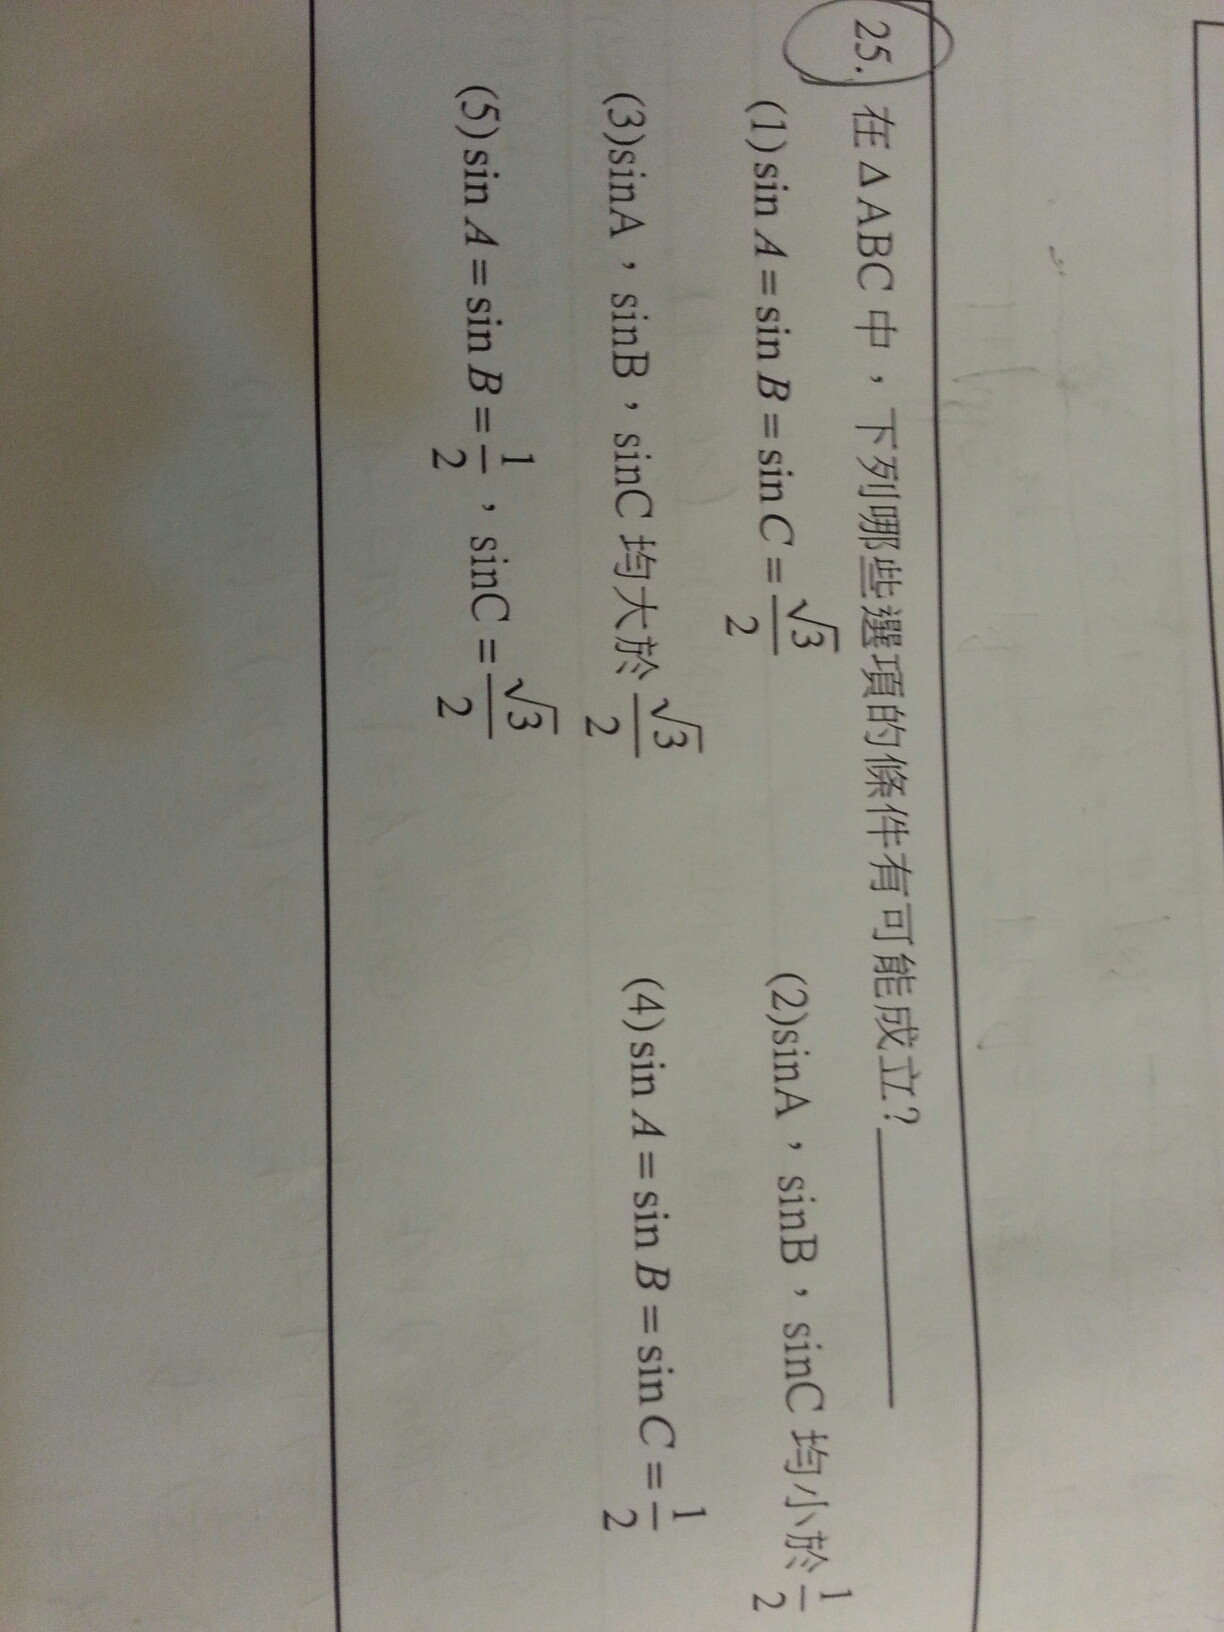 25. 在△ABC中，下列哪些選項的條件有可能成立?________
(1) sin A = sin B = sin C = √3/2 (2)sinA，sinB，sinC 均小於 1/2
(3)sinA，sinB，sinC 均大於 √3/2 (4) sin A = sin B = sin C = 1/2
(5) sin A = sin B = 1/2，sinC = √3/2